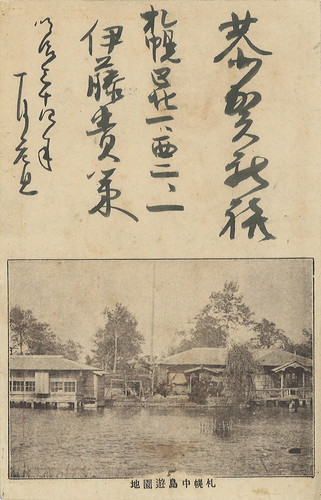 恭賀新禧
札幌区北一、西二、一
伊藤貴
明治三十四年
一月元旦
札幌中島遊園地